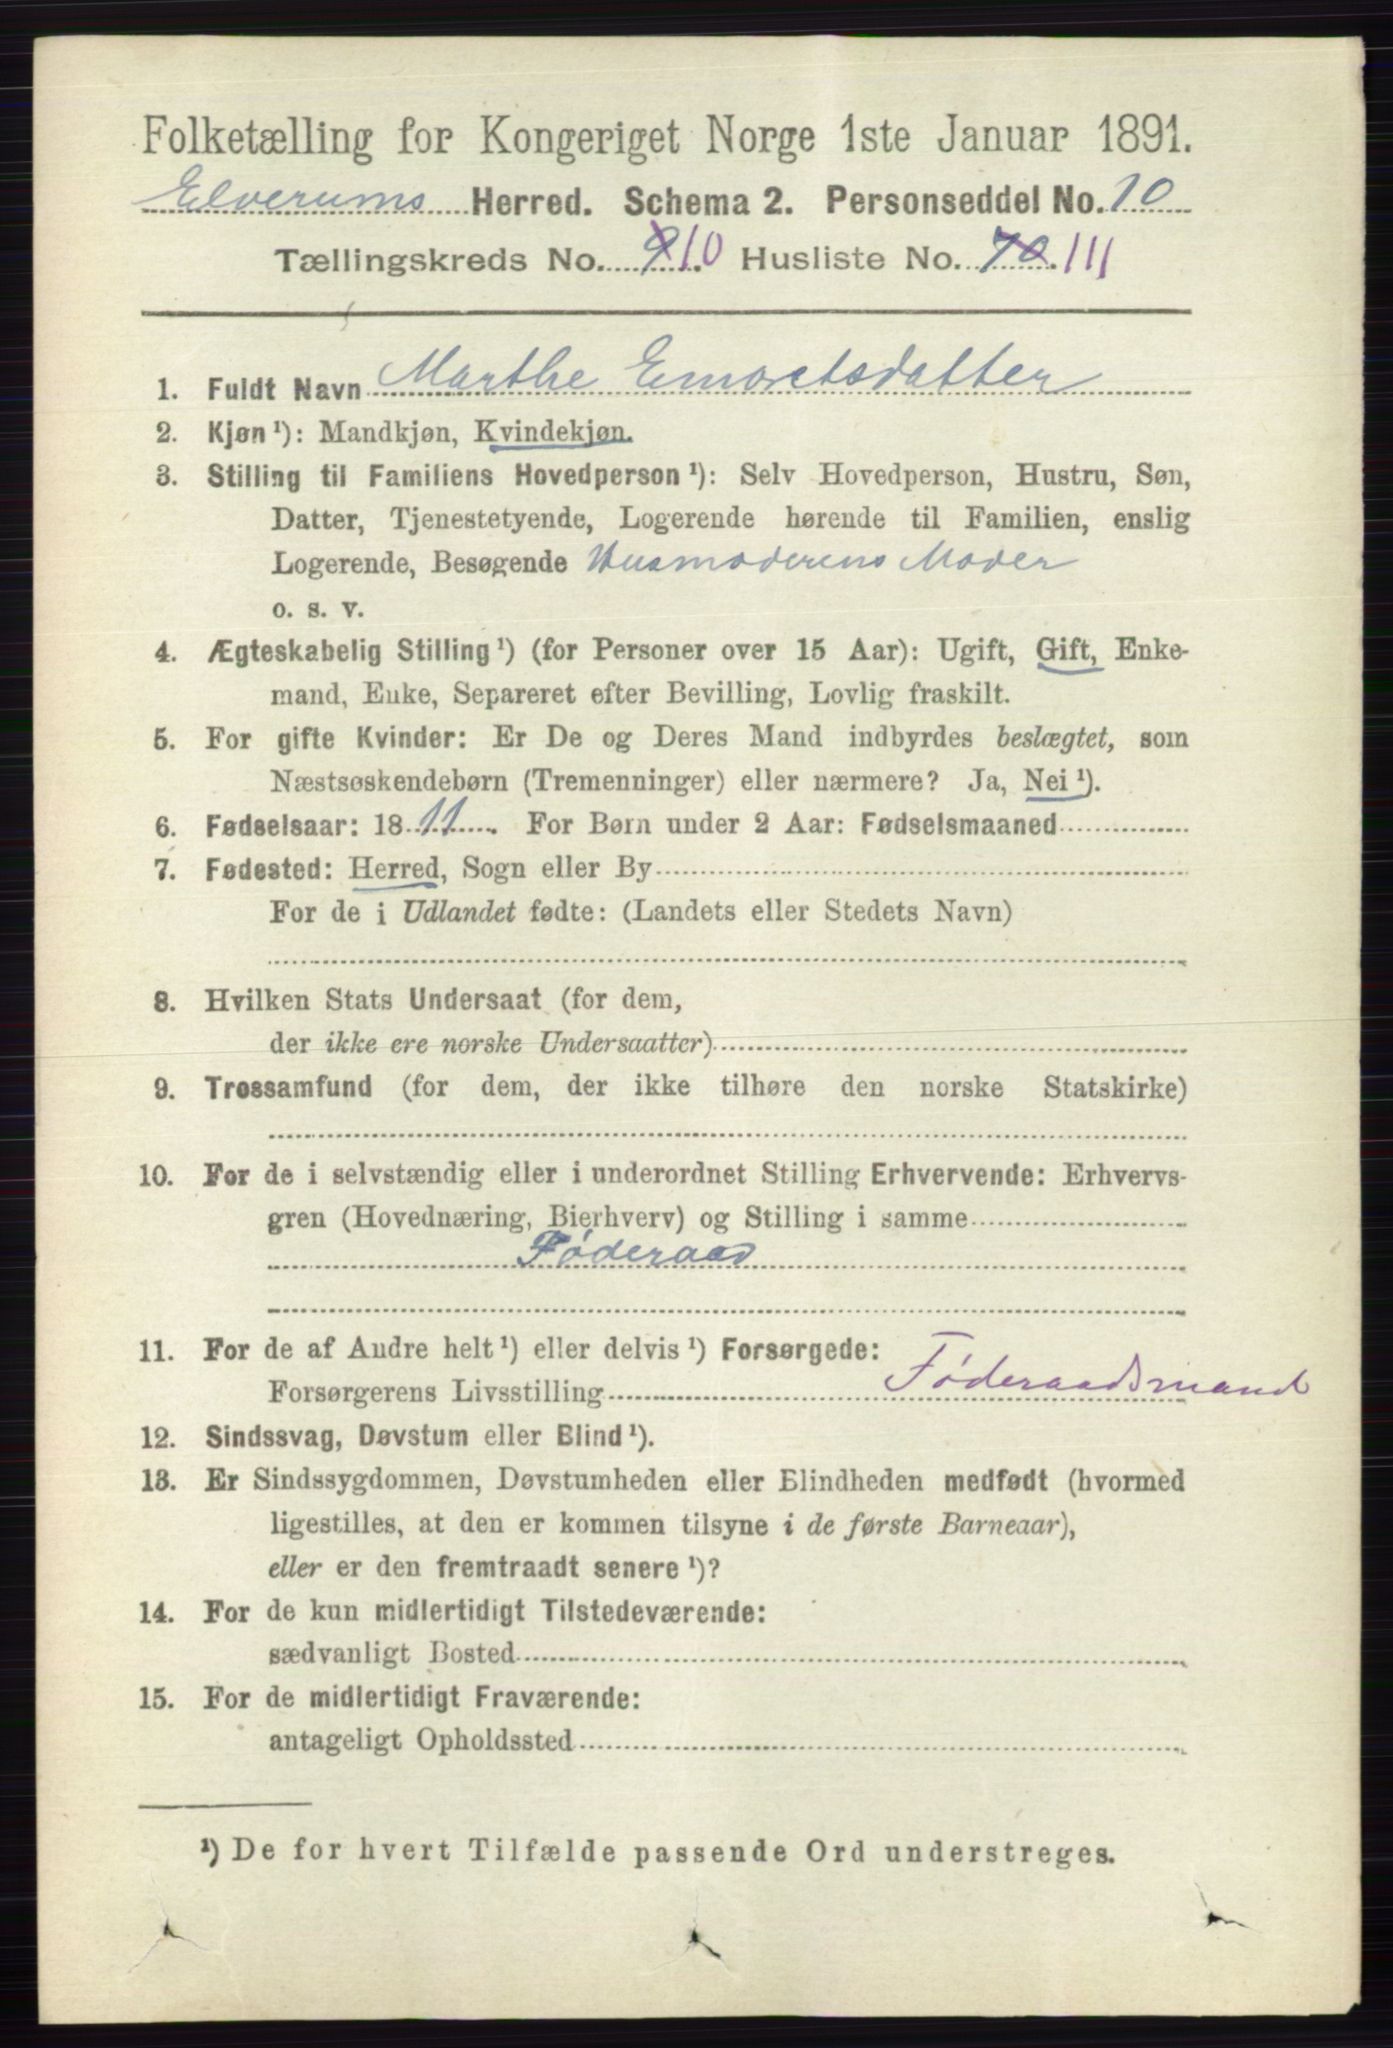 Folketælling for Kongeriget Norge 1ste Januar 1891.
Elverums Herred. Schema 2. Personseddel No. 10
Tællingskreds No. 9 10 Husliste No. 70 111
1. Fuldt Navn Marthe Emoretsdatter
2. Kjøn ¹): Mandkjøn, Kvindekjøn.
3. Stilling til Familiens Hovedperson ¹): Selv Hovedperson, Hustru, Søn,
Datter, Tjenestetyende, Logerende hørende til Familien, enslig
Logerende, Besøgende Husmoderens Moder
o. s. v.
4. Ægteskabelig Stilling ¹) (for Personer over 15 Aar): Ugift, Gift, Enke-
mand, Enke, Separeret efter Bevilling, Lovlig fraskilt.
5. For gifte Kvinder: Er De og Deres Mand indbyrdes beslægtet, som
Næstsøskendebørn (Tremenninger) eller nærmere? Ja, Nei ¹).
6. Fødselsaar: 1811. For Børn under 2 Aar: Fødselsmaaned
7. Fødested: Herred, Sogn eller By
For de i Udlandet fødte: (Landets eller Stedets Navn)
8. Hvilken Stats Undersaat (for dem,
der ikke ere norske Undersaatter)
9. Trossamfund (for dem, der ikke tilhøre den norske Statskirke)
10. For de i selvstændig eller i underordnet Stilling Erhvervende: Erhvervs-
gren (Hovednæring, Bierhverv) og Stilling i samme
Føderaad
11. For de af Andre helt ¹) eller delvis ¹) Forsørgede:
Forsørgerens Livsstilling Føderaadsmand
12. Sindssvag, Døvstum eller Blind ¹).
13. Er Sindssygdommen, Døvstumheden eller Blindheden medfødt (hvormed
ligestilles, at den er kommen tilsyne i de første Barneaar),
eller er den fremtraadt senere ¹)?
14. For de kun midlertidigt Tilstedeværende:
sædvanligt Bosted
15. For de midlertidigt Fraværende:
antageligt Opholdssted
¹) De for hvert Tilfælde passende Ord understreges.